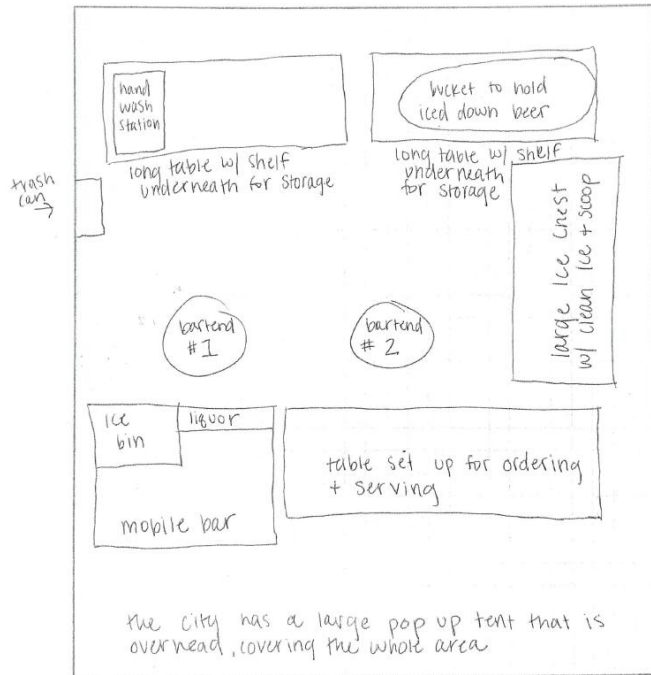 hand
wash
station
bucket to hold
iced down beer
long table w/ shelf
underneath for storage
long table w/ shelf
underneath
for storage
trash
can
large ice chest
w/ clean ice + scoop
bartend
#1
bartend
# 2
ice
bin
liquor
mobile bar
table set up for ordering
+ serving
the city has a large pop up tent that is
overhead, covering the whole area